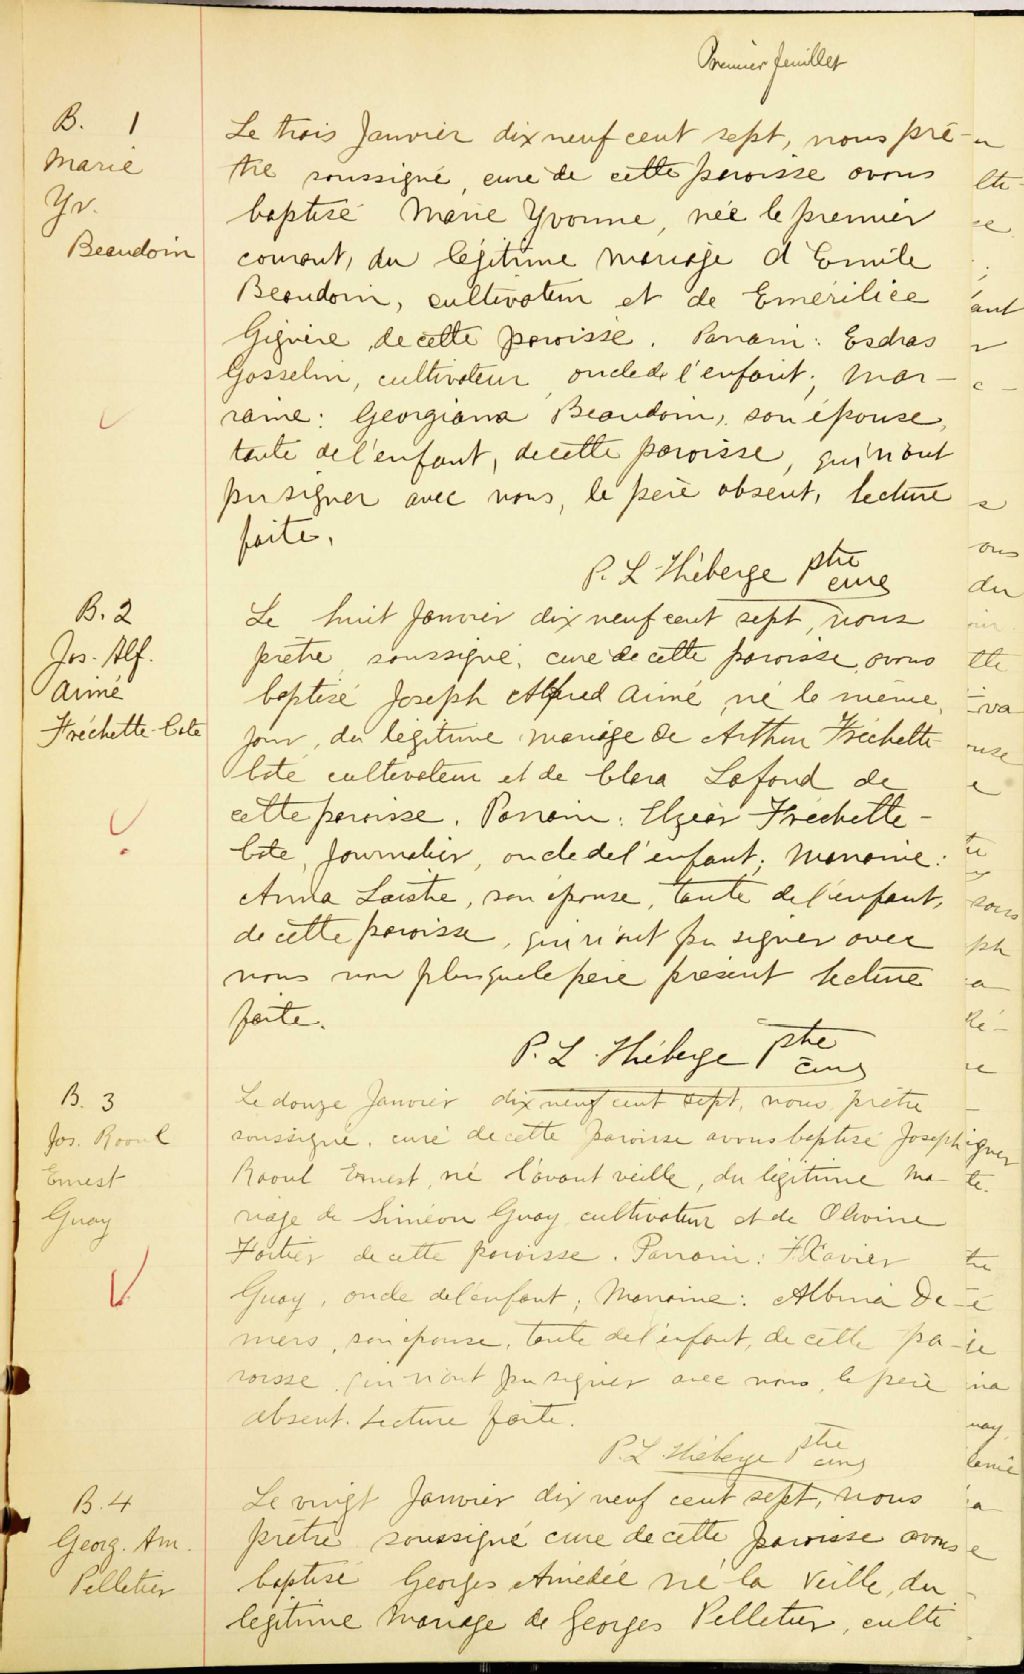 Premier feuillet
B. 1
Marie
Yv.
Beaudoin
Le trois Janvier dix neuf cent sept, nous prê-
tre soussigné, curé de cette paroisse avons
baptisé Marie Yvonne, née le premier
courant, du légitime mariage d'Emile
Beaudoin, cultivateur et de Emérilice
Giguère de cette paroisse. Parrain: Esdras
Gosselin, cultivateur, oncle de l'enfant; mar-
raine: Georgianna Beaudoin, son épouse,
tante de l'enfant, de cette paroisse, qui n'ont
pu signer avec nous, le père absent, lecture
faite.
P. L. Théberge ptre
curé
B. 2
Jos. Alf.
Aimé
Fréchette-Cote
Le huit Janvier dix neuf cent sept, nous
prêtre soussigné, curé de cette paroisse avons
baptisé Joseph Alfred Aimé, né le même
jour, du légitime mariage de Arthur Fréchette
Coté cultivateur et de Clara Lafond de
cette paroisse. Parrain: Elzéar Fréchette-
Cote, Journalier, oncle de l'enfant; Marraine:
Anna , son épouse, tante de l'enfant,
de cette paroisse, qui n'ont pu signer avec
nous non plus que le père présent lecture
faite.
P. L. Théberge ptre
curé
B. 3
Jos. Raoul
Ernest
Guay
Le douze Janvier dix neuf cent sept, nous prêtre
soussigné, curé de cette paroisse avons baptisé Joseph
Raoul Ernest, né l'avant veille, du légitime ma-
riage de Siméon Guay cultivateur et de Olivine
Fortier de cette paroisse. Parrain: F. Xavier
Guay, oncle de l'enfant; Marraine: Albina De-
mers, son épouse, tante de l'enfant, de cette pa-
roisse qui n'ont pu signer avec nous, le père
absent. Lecture faite.
P. L. Théberge ptre
curé
B. 4
Georg. Am.
Pelletier
Le vingt Janvier dix neuf cent sept, nous
prêtre soussigné curé de cette paroisse avons
baptisé Georges Amédée né la veille, du
légitime mariage de Georges Pelletier, culti